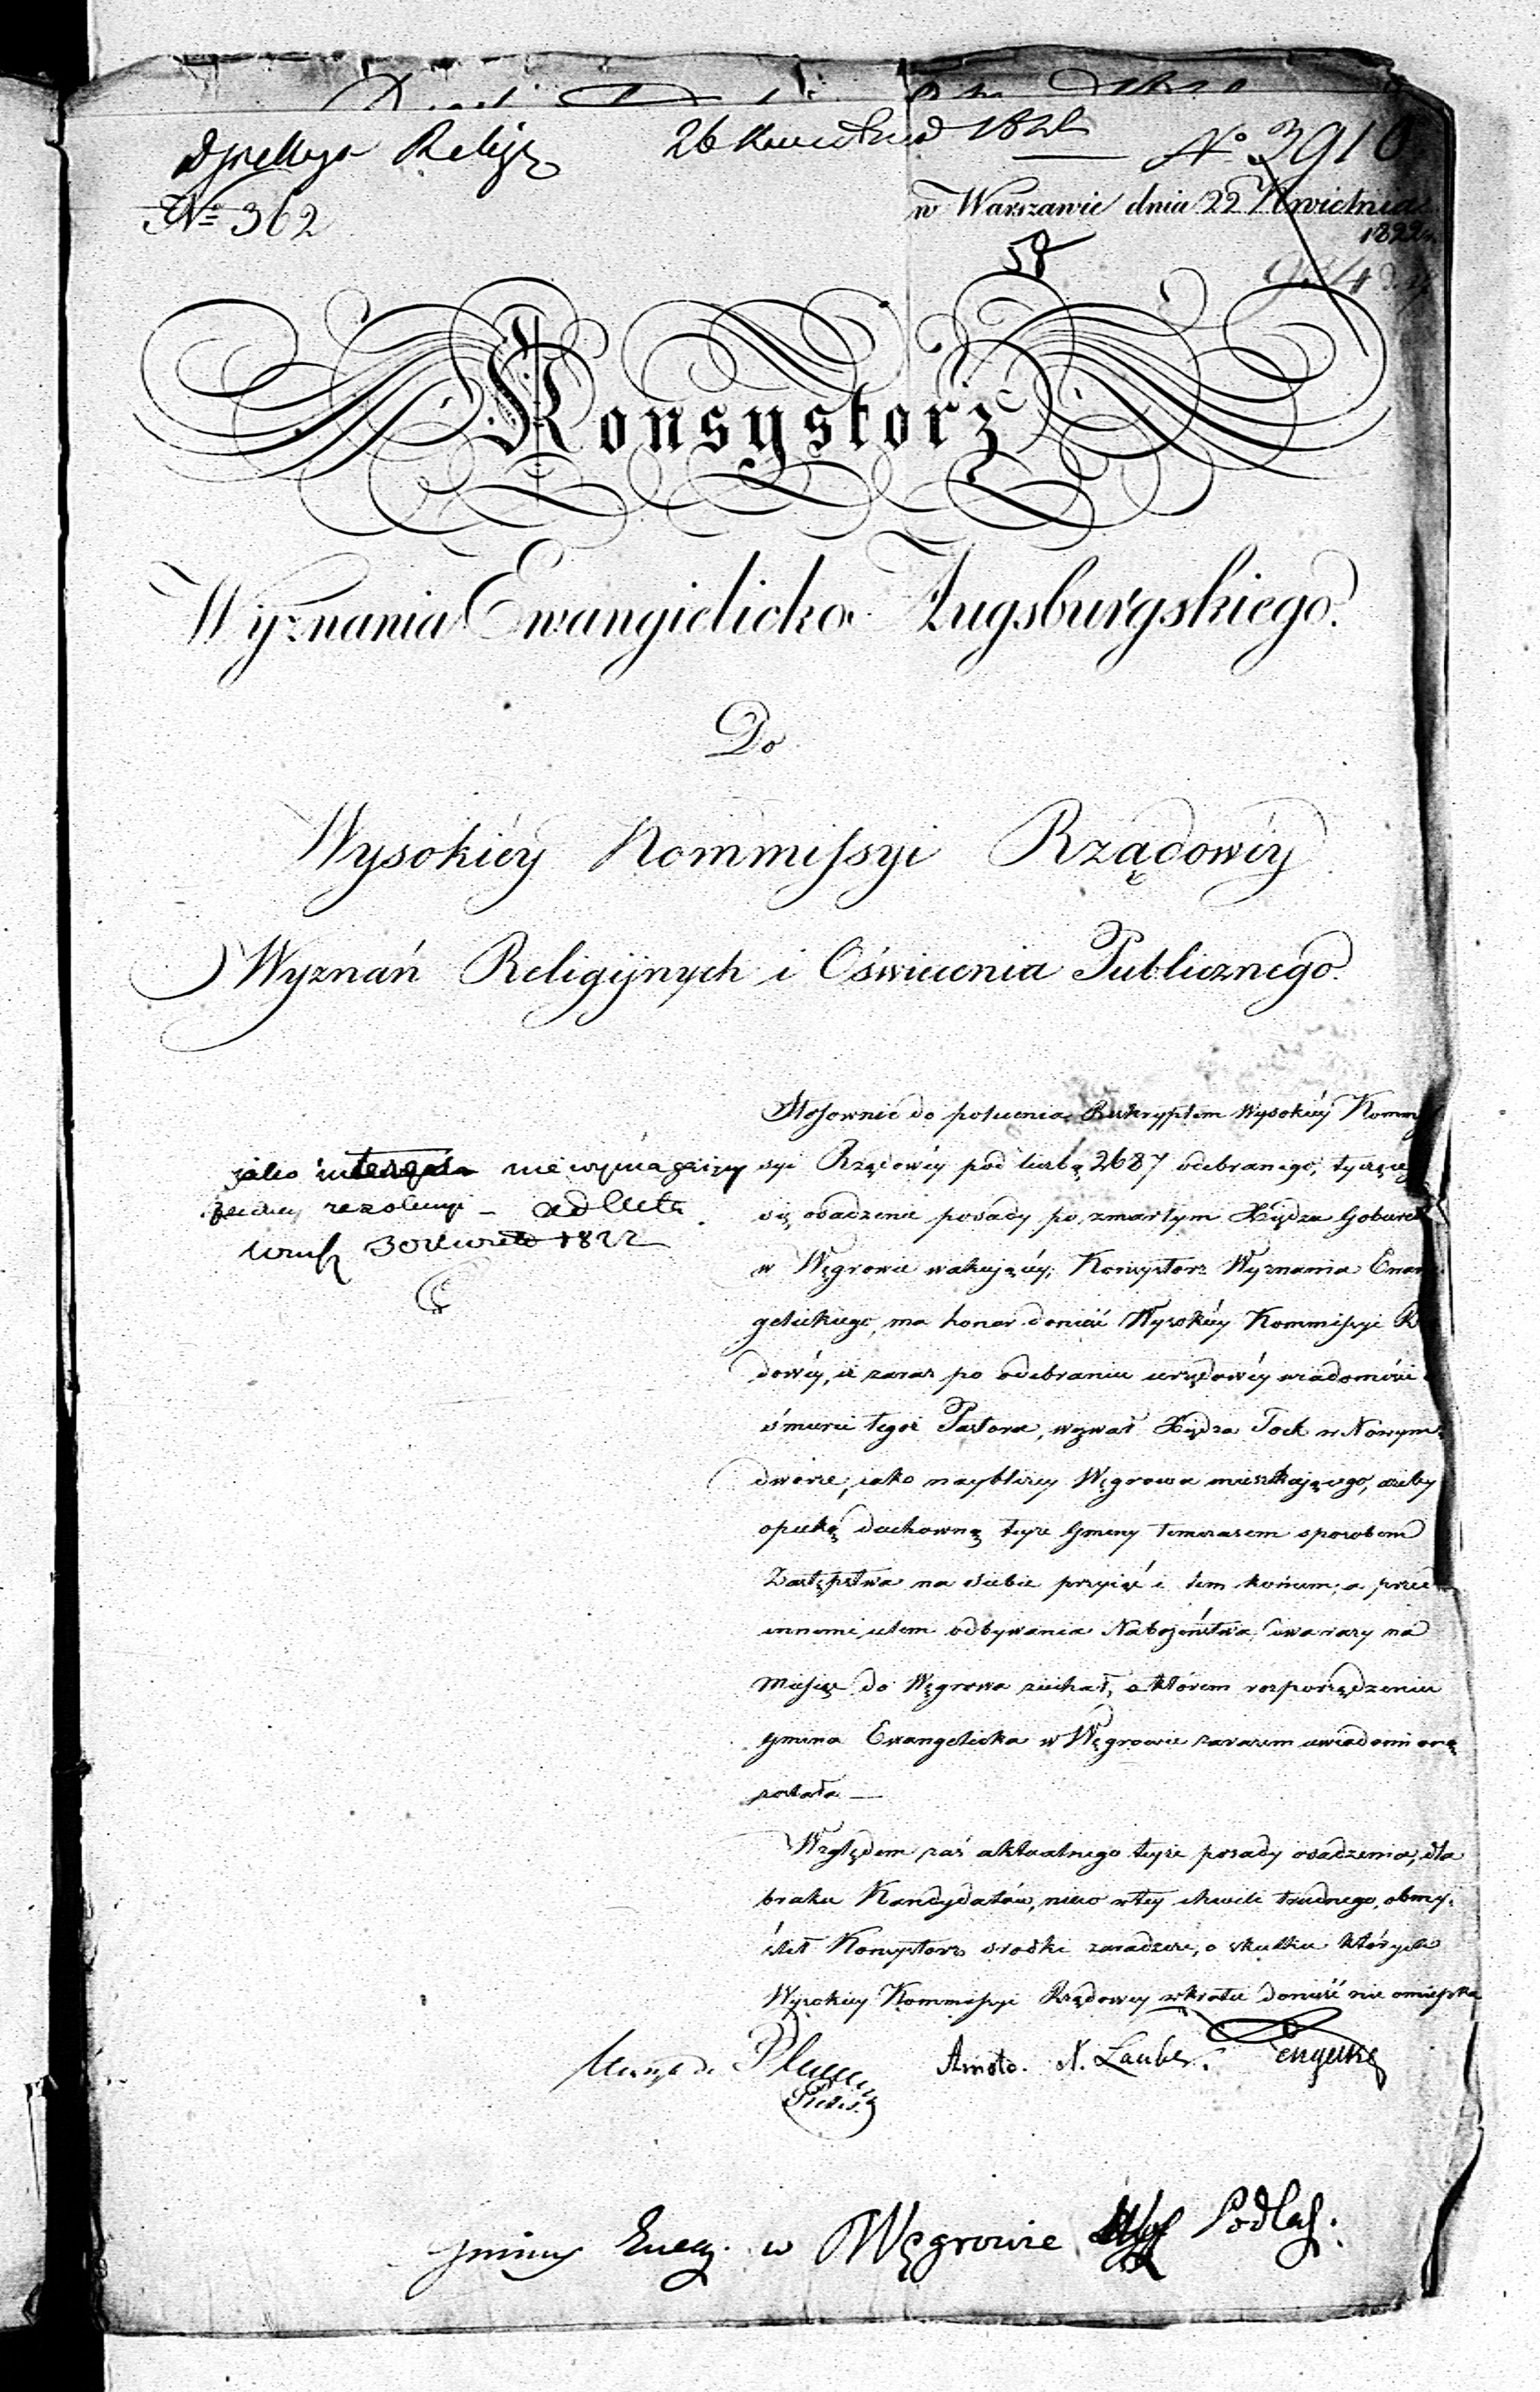 Religij 26 Kwietnia 182
No 3910
No 362
w Warszawie dnia 22 Kwietnia
1822
58
Konsystorz
Wyznania Ewangielicko Augsburgskiego.
Do
Wysokiéy Kommissyi Rządowéy
Wyznań Religijnych i Oświecenia Publicznego.
Stosownie do polecenia Reskryptem Wysokiéy Kommis
syi Rządowéy pod liczbą 2687 odebranego, tyczące
się osadzenie posady po zmarłym Xiędzu
w Węgrowie wakuiącéy; Konsystorz Wyznania Ewan
gelickiego, ma honor donieść Wysokiéy Kommissyi Rz
dowéy, iż zaraz po odebraniu urzędowéy wiadomości
śmierci tegoż Pastora, wezwał Xiędza Tock w Nowym
dworze, iako naybliżey Węgrowa mieszkaiącego, ażeby
opiekę duchowną teyże Gminy tymczasem sposobem
Zastępstwa na siebie przyiął i tem końcem, a przed
innemi celem odbywania Nabożeństwa, dwa razy na
Miesiąc do Węgrowa ziechał, o którem rozporządzeniu
gmina Ewangelicka w Węgrowie zarazem uwiadomioną
została —
Względem zaś aktualnego teyże posady osadzenia, dla
braku Kandydatów, nieco w tey chwili trudnego, obmy-
ślił Konsystorz środki zaradcze, o skutku których
Wysokiey Kommissyi Rządowey wkrótce donieść nie omieszka
jako niewymagaiący
rezolucyi — ad acta
30 1822
Arnold. N. Lauber.
Tengelke
Prezes.
gminy Ewang. w Węgrowie Podlas.